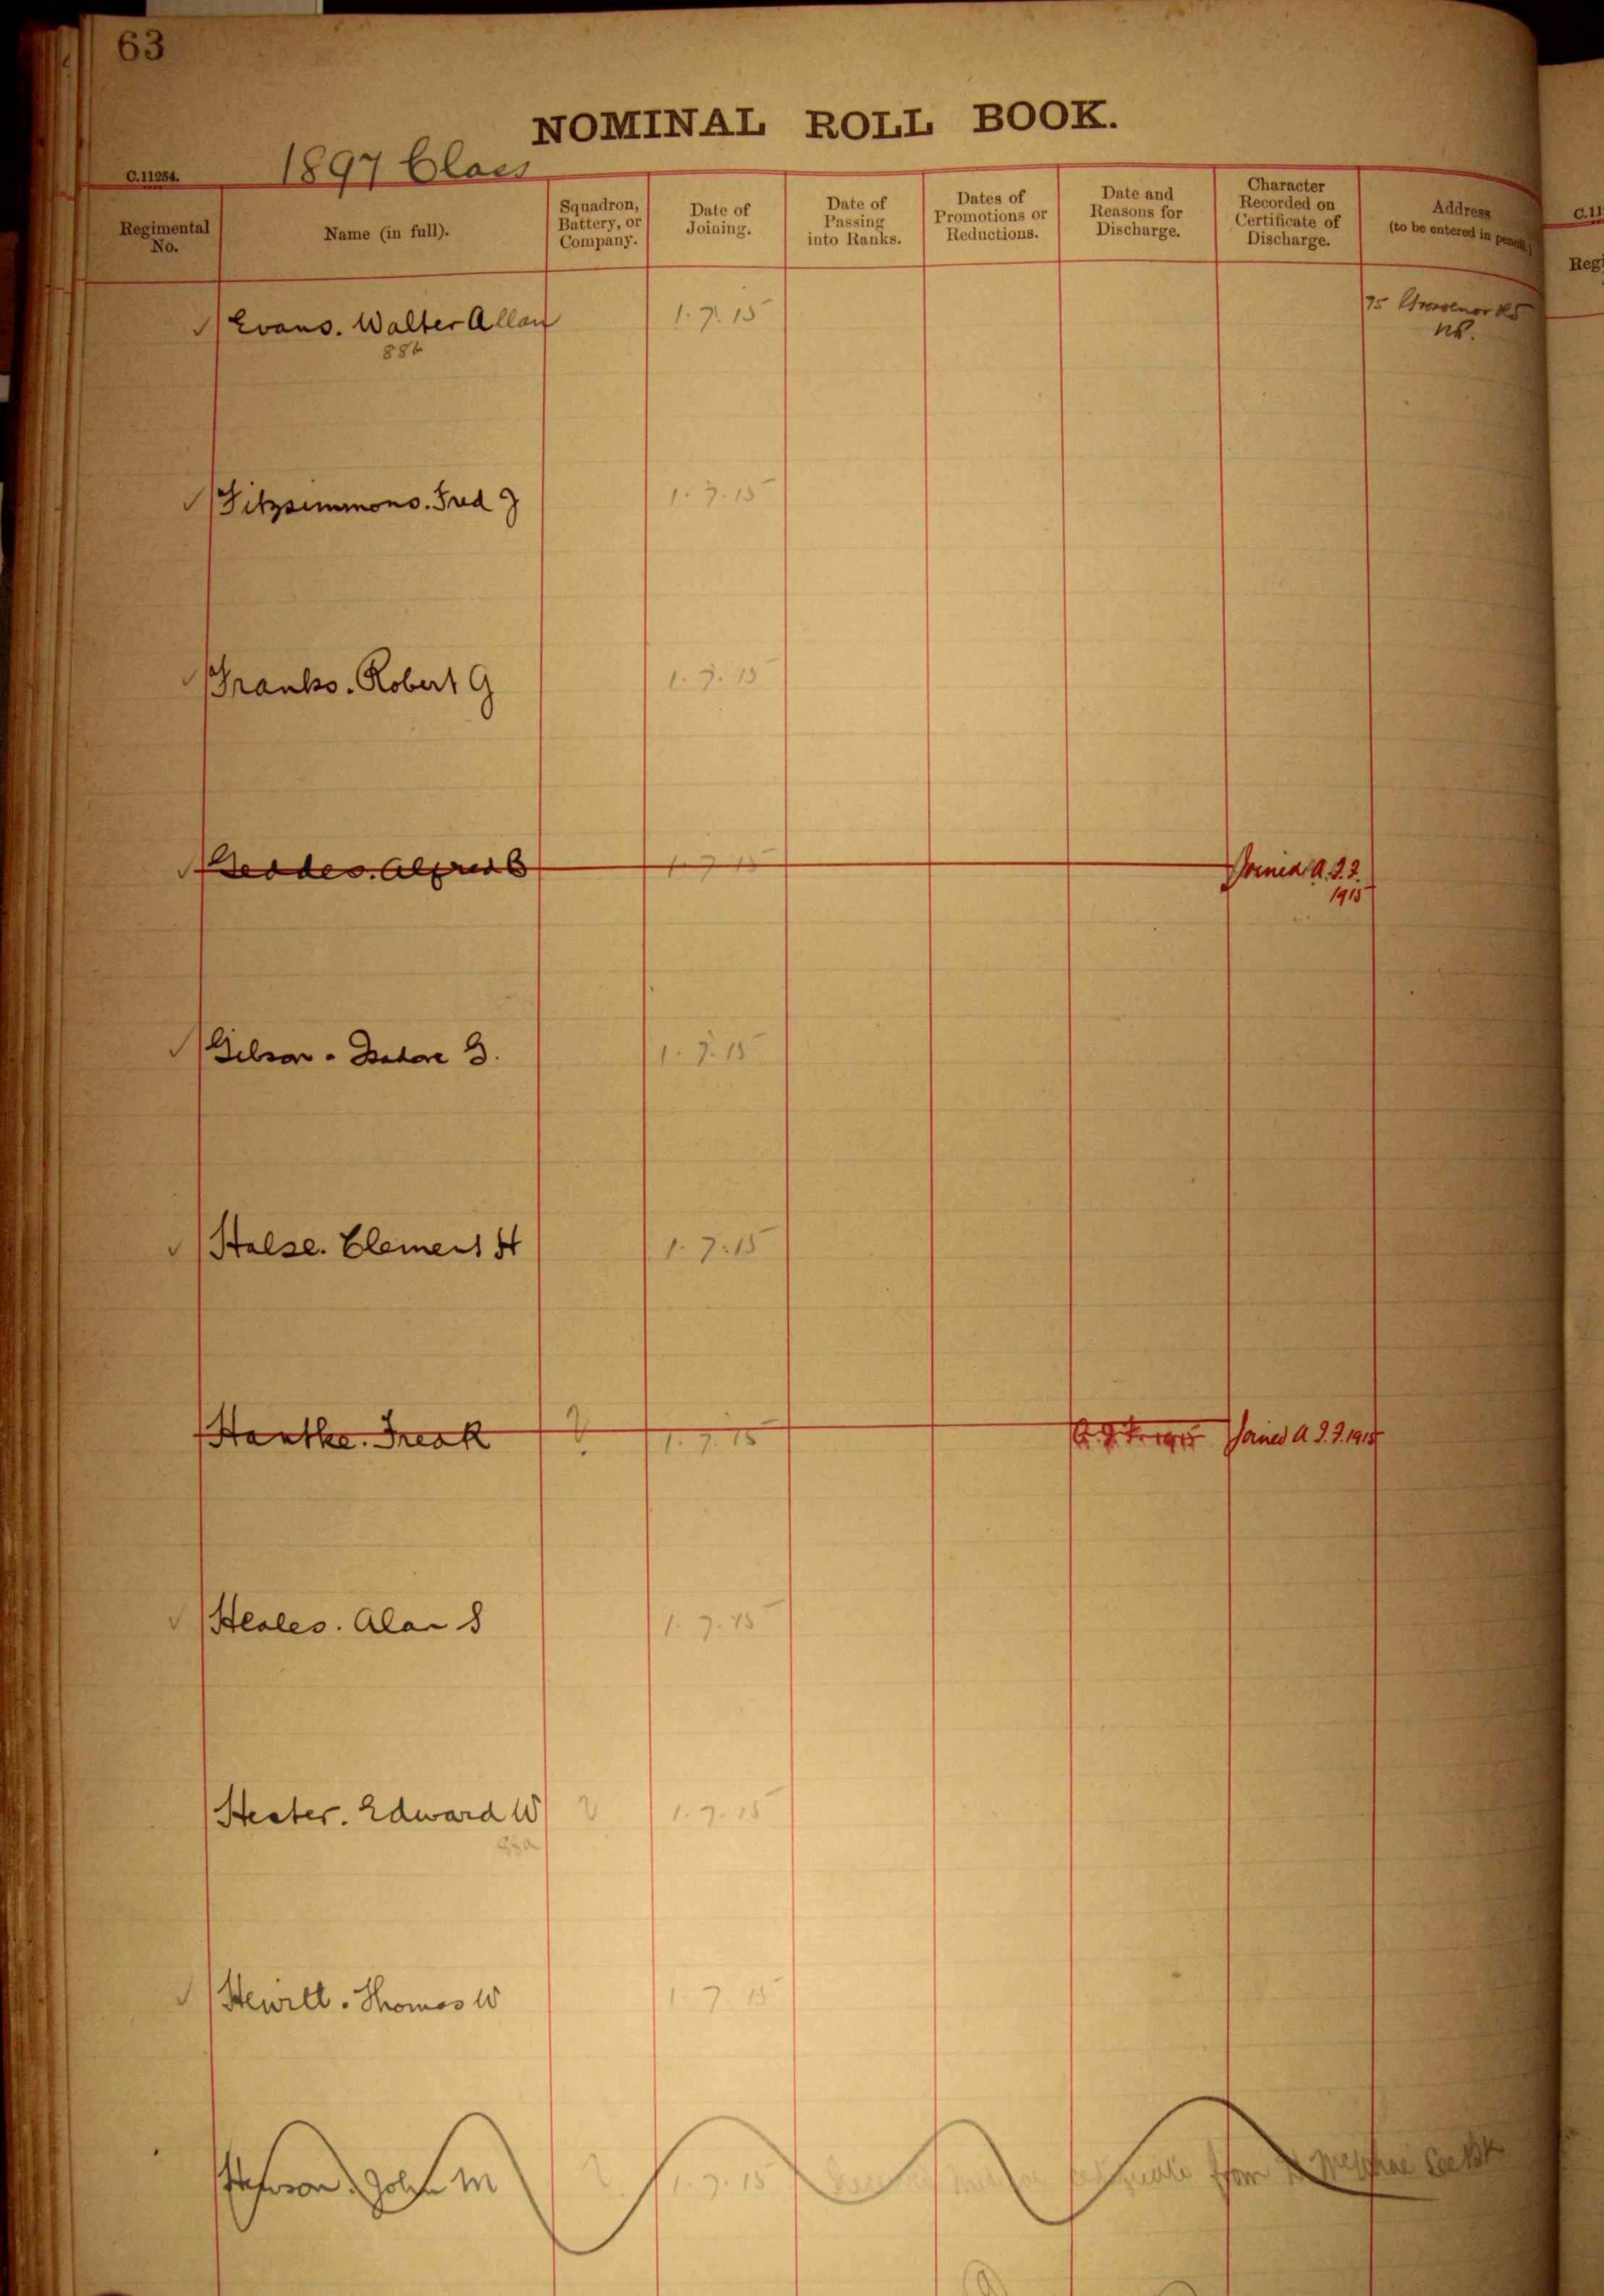 63
NOMINAL ROLL BOOK.
C.11254.
1897 Class
Regimental No.
Name (in full).
Squadron, Battery, or Company.
Date of Joining.
Date of Passing into Ranks.
Dates of Promotions or Reductions.
Date and Reasons for Discharge.
Character Recorded on Certificate of Discharge.
Address (to be entered in pencil.)
C.11
Regi
Evans. Walter Allan 1.7.15 75 Grosvenor Rd
886 NS.
Fitzsimmons. Fred J 1.7.15
Franks. Robert G 1.7.15
Geddes. Alfred C 1.7.15 Joined A.I.F.
1915
Gilson. Isadore G. 1.7.15
Halse. Clement H 1.7.15
Hantke. Fred R ? 1.7.15 A.I.F. 1915 Joined A.I.F. 1915
Heales. Alan S 1.7.15
Hester. Edward W 1.7.15
Hewitt. Thomas W 1.7.15
John M 1.7.15 certificate from